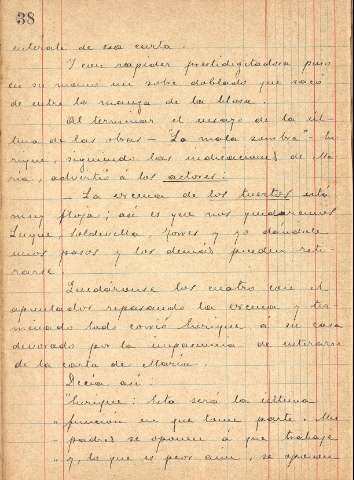 38
enterate de esa carta.
Y con rapidez prestidigitadora puso
en su mano un sobre doblado que sacó
de entre la manga de la blusa.
Al terminar el ensayo de la úl-
tima de las obras - "La mala sombra" - En-
rique, siguiendo las indicaciones de Ma-
ría, advirtió á los actores:
- La escena de los tuertos está
muy floja; así es que nos quedaremos
Luque, Soldevilla, Torres y yo dándole
unos pasos y los demás pueden reti-
rarse.
Quedáronse los cuatro con el
apuntador repasando la escena y ter-
minado todo corrió Enrique á su casa
devorado por la impaciencia de enterarse
de la carta de María.
Decía así:
"Enrique: Esta será la última
" función en que tome parte. Mis
" padres se oponen á que trabaje
" y, lo que es peor aún, se oponen